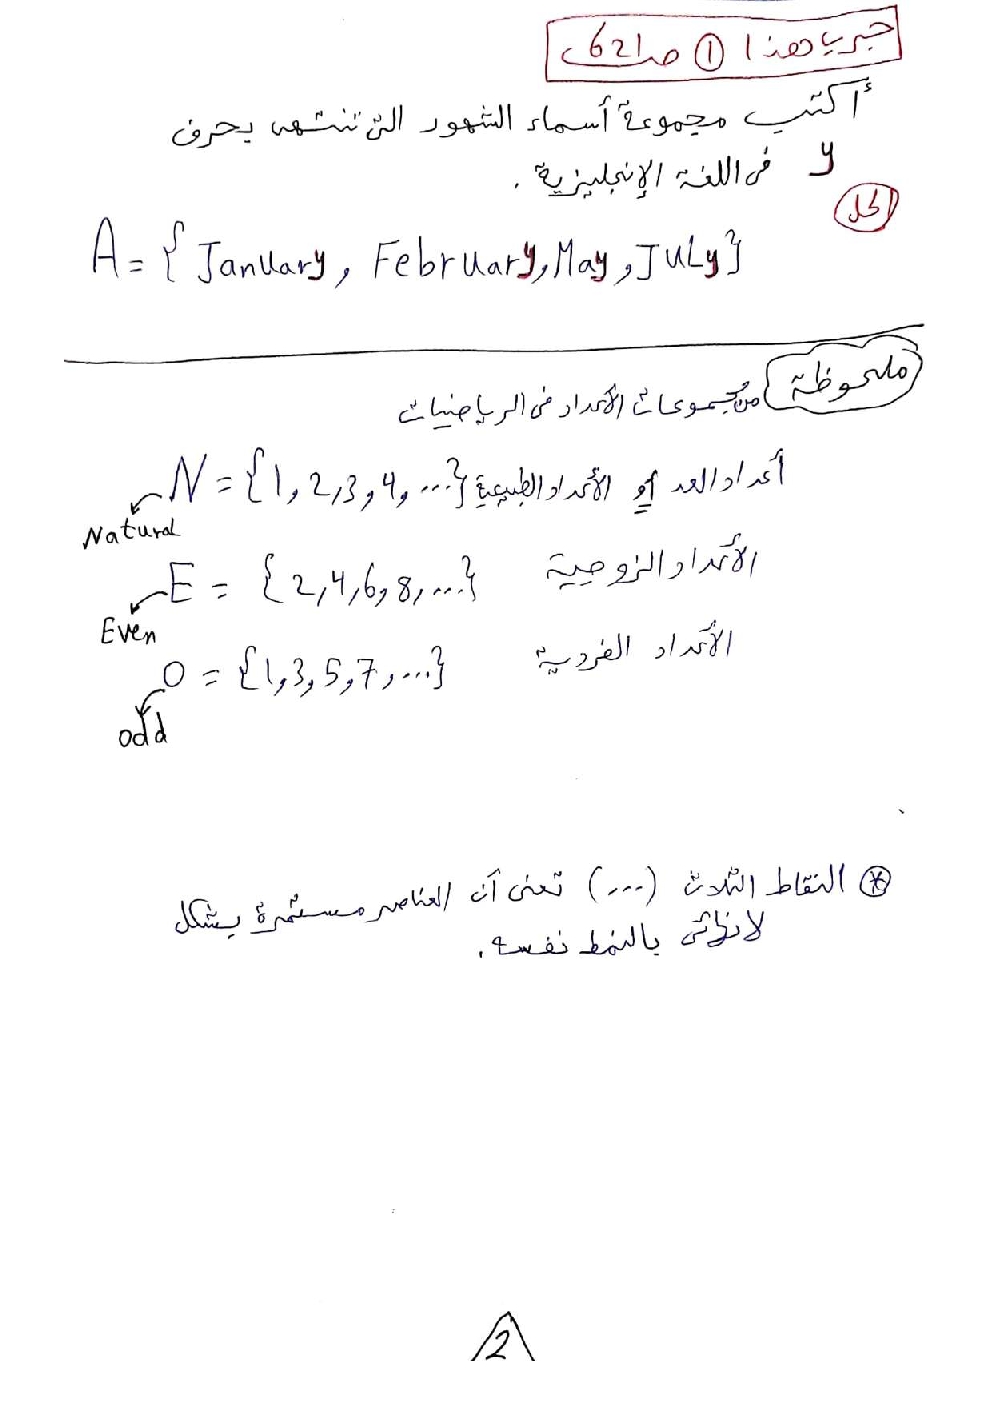 جرب هذا ① صـ 621
أكتب مجموعة أسماء الشهور التى تنتهى بحرف
y فى اللغة الإنجليزية .
الحل
A = { January, February, May, JuLy }
ملحوظة
من مجموعات الأعداد فى الرياضيات
أعداد العد أو الأعداد الطبيعية N = {1, 2, 3, 4, ...}
Natural
الأعداد الزوجية E = {2, 4, 6, 8, ...}
Even
الأعداد الفردية O = {1, 3, 5, 7, ...}
odd
* النقاط الثلاث (...) تعنى أن العناصر مستمرة بشكل
لا نهائى بالنمط نفسه.
2